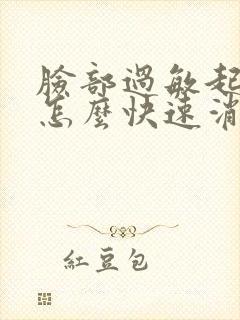 臉部過敏起
怎麼快速消
紅豆包